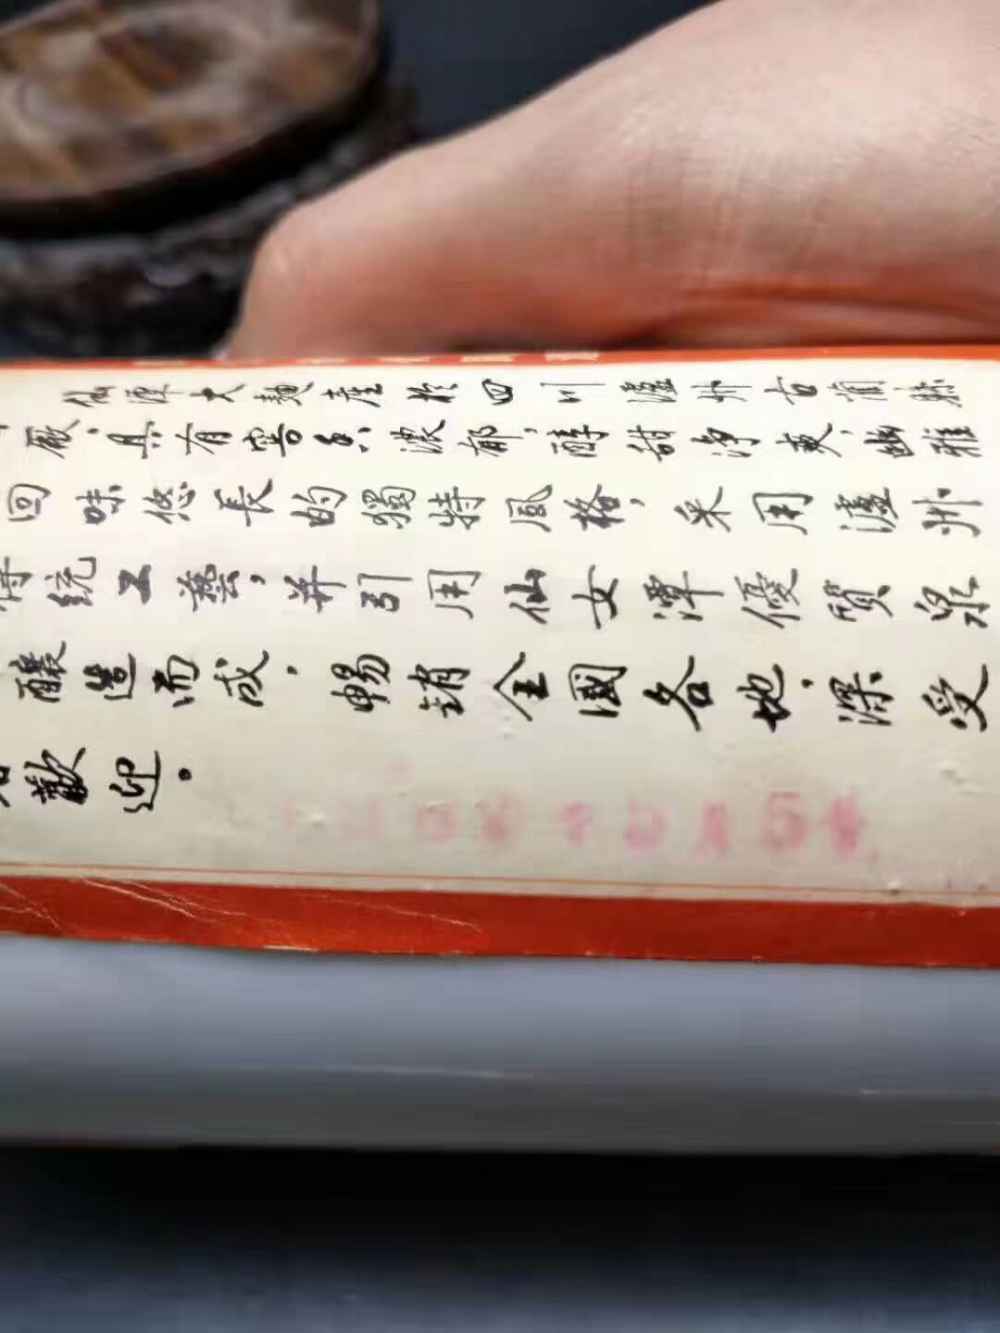 仙潭大麯產於四川瀘州古藺縣
廠，具有窖香濃郁，醇甜淨爽，幽雅
回味悠長的獨特風格，采用瀘州
傳統工藝，并引用仙女潭優質泉
釀造而成，暢銷全國各地，深受
歡迎。